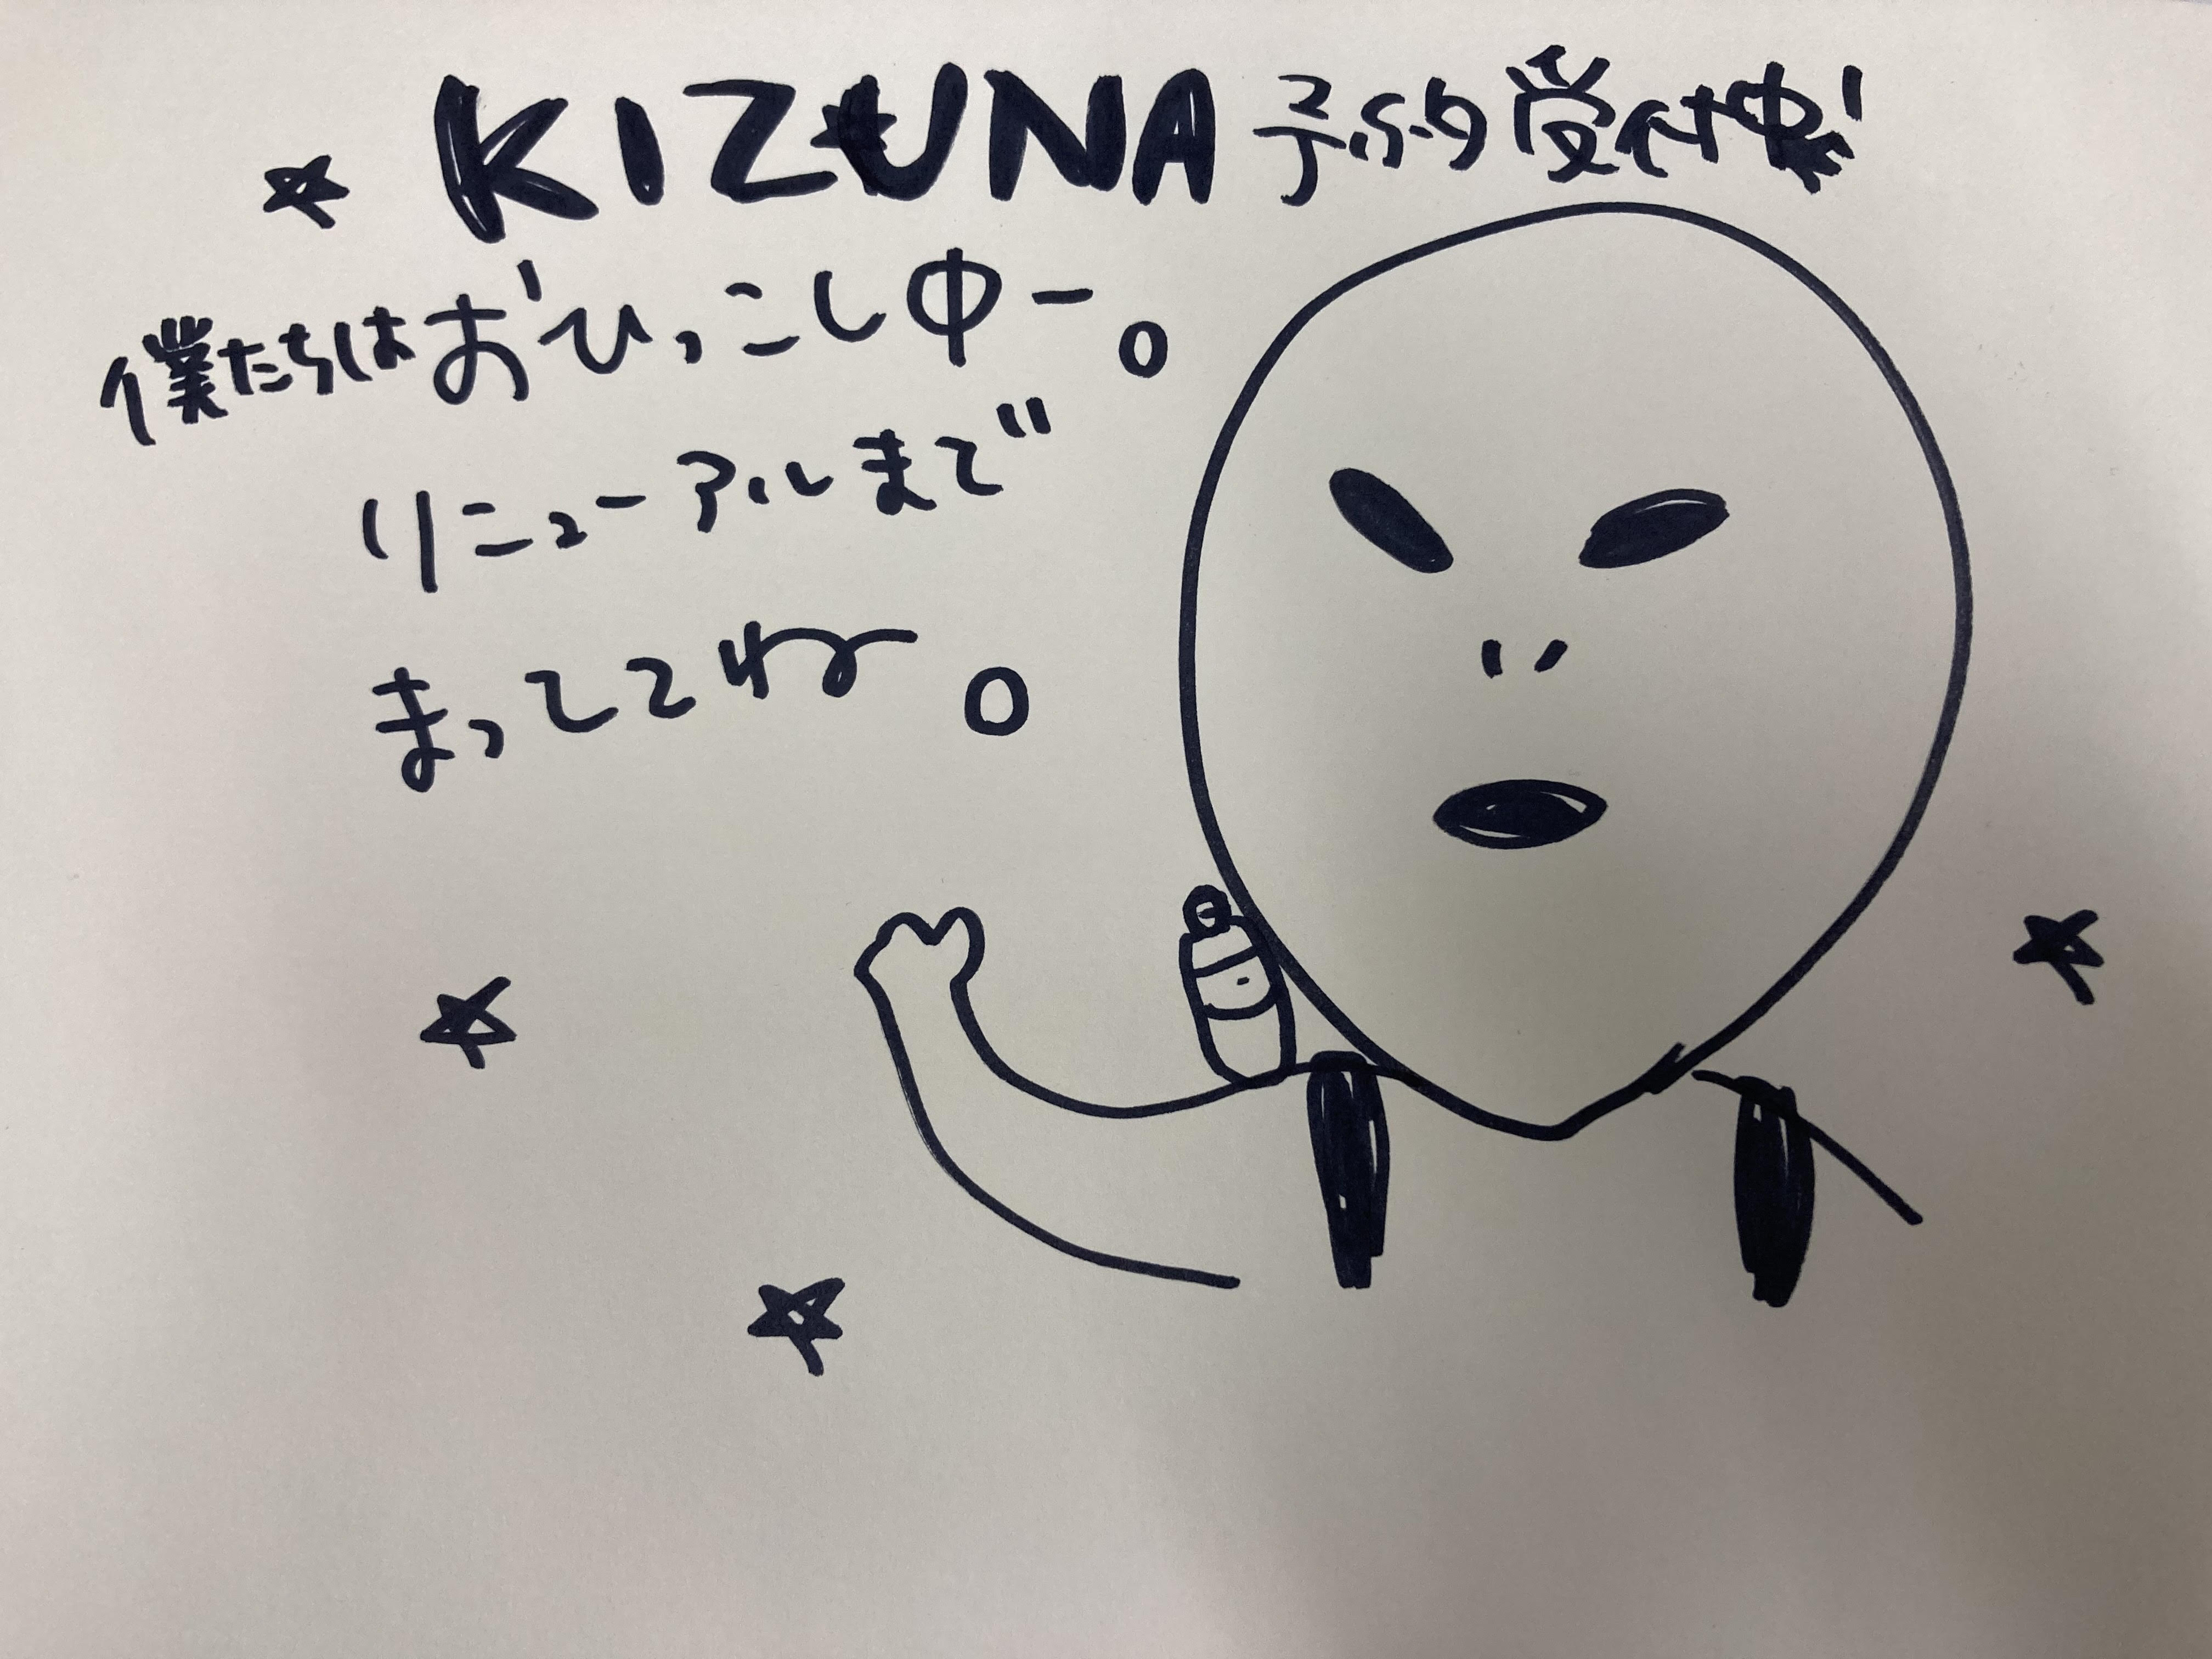 KIZUNA 予約受付中!
僕たちはおひっこし中ー。
リニューアルまで
まっててね。